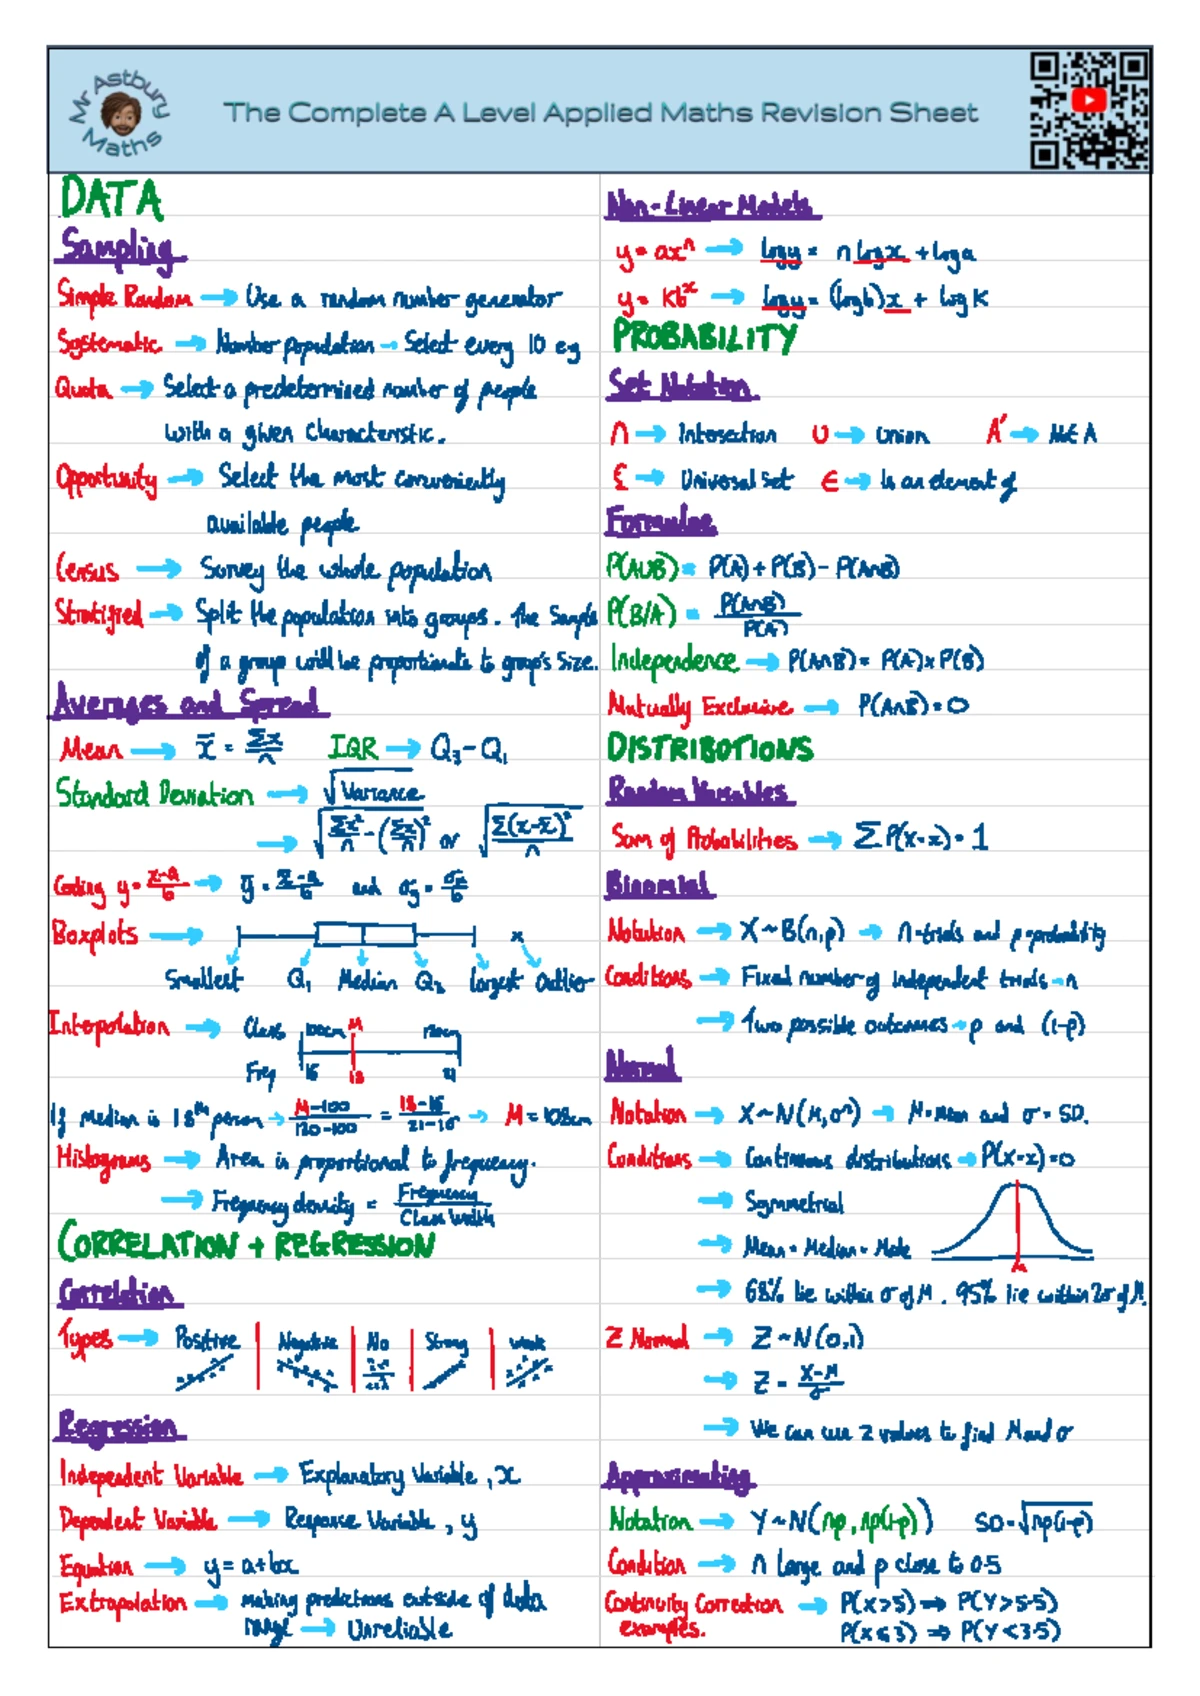 Mr Astbury Maths
The Complete A Level Applied Maths Revision Sheet
DATA
Sampling
Simple Random → Use a random number generator
Systematic → Number population → Select every 10 eg
Quota → Select a predetermined number of people
with a given characteristic.
Opportunity → Select the most conveniently
available people
Census → Survey the whole population
Stratified → Split the population into groups. The Sample
of a group will be proportionate to group's size.
Averages and Spread
Mean → x̄ = Σx/n IQR → Q₃ - Q₁
Standard Deviation → √Variance
→ √(Σx²/n - (Σx/n)²) or √(Σ(x-x̄)²/n)
Coding y = (x-a)/b → ȳ = (x̄-a)/b and σy = σx/b
Boxplots →
Smallest Q₁ Median Q₃ largest outlier
Interpolation → Class 100cm M 120cm
Freq 16 18 21
If median is 18th person → (M-100)/(120-100) = (18-16)/(21-16) → M = 108cm
Histograms → Area is proportional to frequency.
→ Frequency density = Frequency/Class Width
CORRELATION + REGRESSION
Correlation
Types → Positive Negative No Strong weak
Regression
Independent Variable → Explanatory Variable, x
Dependent Variable → Response Variable, y
Equation → y = a+bx
Extrapolation → making predictions outside of data
range → Unreliable
Non-Linear Models
y = axⁿ → logy = nlogx + loga
y = Kbˣ → logy = (logb)x + logK
PROBABILITY
Set Notation
∩ → Intersection U → Union A' → Not A
ξ → Universal Set ∈ → Is an element of
Formulae
P(AUB) = P(A) + P(B) - P(A∩B)
P(B/A) = P(A∩B)/P(A)
Independence → P(A∩B) = P(A)×P(B)
Mutually Exclusive → P(A∩B) = 0
DISTRIBUTIONS
Random Variables
Sum of Probabilities → ΣP(X=x) = 1
Binomial
Notation → X~B(n,p) → n=trials and p=probability
Conditions → Fixed number of independent trials - n
→ Two possible outcomes → p and (1-p)
Normal
Notation → X~N(μ,σ²) → μ=Mean and σ=SD.
Conditions → Continuous distributions → P(X=x)=0
→ Symmetrical
→ Mean = Median = Mode
μ
→ 68% lie within σ of μ. 95% lie within 2σ of μ.
Z Normal → Z~N(0,1)
→ Z = (X-μ)/σ
→ We can use z values to find μ and σ
Approximating
Notation → Y~N(np, np(1-p)) SD=√np(1-p)
Condition → n large and p close to 0.5
Continuity Correction → P(X>5) ⇒ P(Y>5.5)
examples. P(X≤3) ⇒ P(Y<3.5)